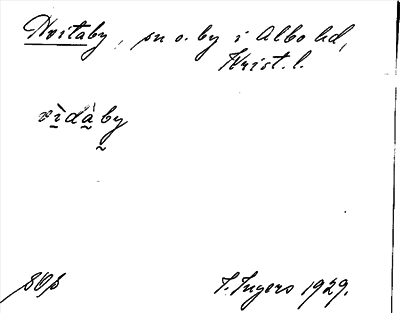 Hvitaby, sn o. by i Albo hd,
Krist. l.
vìdàby
I. Ingers 1929.